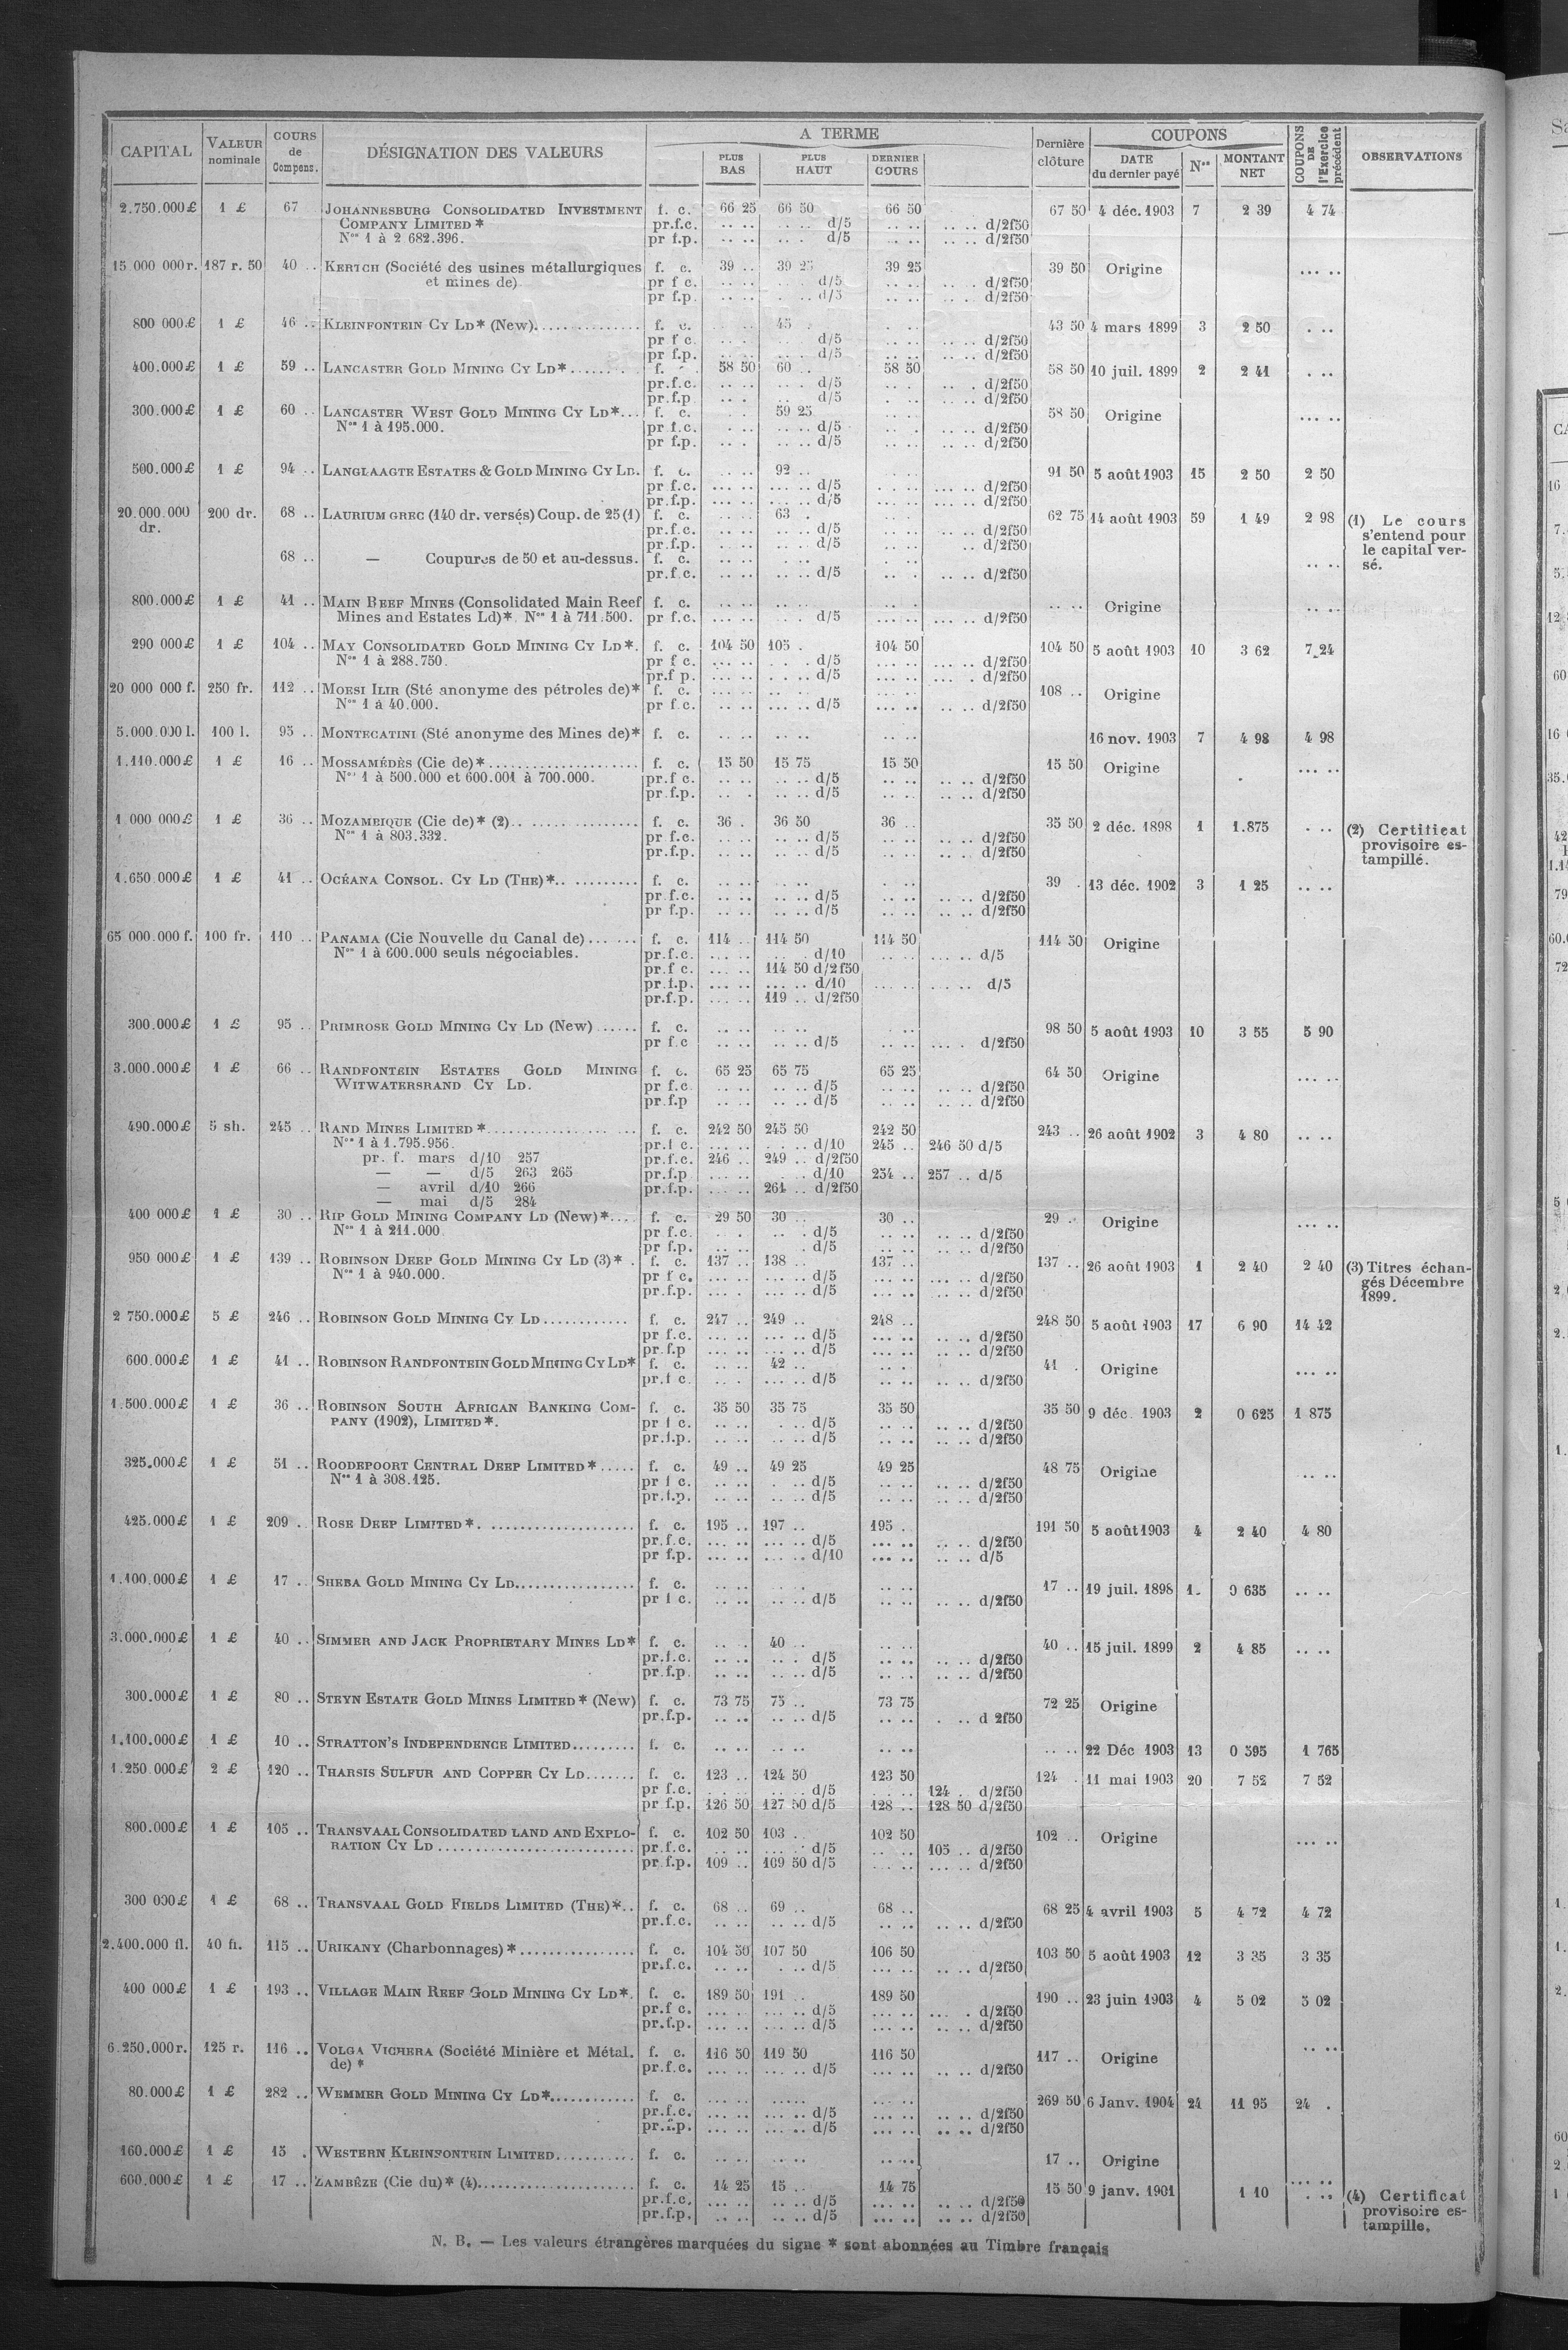 CAPITAL VALEUR nominale COURS de Compens. DÉSIGNATION DES VALEURS A TERME PLUS BAS PLUS HAUT DERNIER COURS Dernière clôture COUPONS DATE du dernier payé Nos MONTANT NET COUPONS DE l'Exercice précédent OBSERVATIONS
2.750.000 £ 1 £ 67 JOHANNESBURG CONSOLIDATED INVESTMENT f. c. 66 25 66 50 66 50 67 50 4 déc. 1903 7 2 39 4 74
COMPANY LIMITED * pr.f.c. .. .. .. .. d/5 .. .. .. .. d/2f50
Nos 1 à 2 682.396. pr f.p. .. .. .. . d/5 .. .. .. .. d/2f50
15 000 000 r. 187 r. 50 40 .. KERTCH (Société des usines métallurgiques f. c. 39 .. 39 25 39 25 39 50 Origine ... ..
et mines de) pr f c. .. .. d/5 .. .. d/2f50
pr f.p. .. .. d/5 .. .. d/2f50
800 000 £ 1 £ 46 .. KLEINFONTEIN CY LD* (New) f. c. 45 . 43 50 4 mars 1899 3 2 50 . ..
pr f c. d/5 .. .. d/2f50
pr f.p. d/5 .. .. d/2f50
400.000 £ 1 £ 59 .. LANCASTER GOLD MINING CY LD* f. 58 50 60 .. 58 50 58 50 10 juil. 1899 2 2 41 . ..
pr.f.c. .. .. d/5 d/2f50
pr.f.p d/5 d/2f50
300.000 £ 1 £ 60 .. LANCASTER WEST GOLD MINING CY LD* f. c. 59 25 58 50 Origine ... ..
Nos 1 à 195.000. pr f.c. .. .. d/5 d/2f50
pr f.p. .. .. d/5 d/2f50
500.000 £ 1 £ 94 .. LANGLAAGTE ESTATES & GOLD MINING CY LD. f. c. 92 .. 91 50 5 août 1903 15 2 50 2 50
pr f.c. ... .. d/5 ... .. d/2f50
pr.f.p. ... .. d/5 ... .. d/2f50
20.000.000 200 dr. 68 .. LAURIUM GREC (140 dr. versés) Coup. de 25 (1) f. c. 63 . 62 75 14 août 1903 59 1 49 2 98 (1) Le cours
dr. pr.f.c. .. .. d/5 .. .. d/2f50 s'entend pour
pr.f.p. .. .. d/5 .. d/2f50 le capital ver-
68 .. — Coupures de 50 et au-dessus. f. c. .. .. sé.
pr.f.c. .. .. d/5 .. .. d/2f50
800.000 £ 1 £ 41 .. MAIN REEF MINES (Consolidated Main Reef f. c. .. .. Origine .. ..
Mines and Estates Ld)*. Nos 1 à 711.500. pr f.c. .. .. d/5 ... .. d/2f50
290 000 £ 1 £ 104 .. MAY CONSOLIDATED GOLD MINING CY LD*. f. c. 104 50 105 . 104 50 104 50 5 août 1903 10 3 62 7 24
Nos 1 à 288.750. pr f c. ... .. d/5 ... .. d/2f50
pr.f p. ... .. d/5 ... . d/2f50
20 000 000 f. 250 fr. 112 .. MOESI ILIR (Sté anonyme des pétroles de)* f. c. ... .. 108 .. Origine
Nos 1 à 40.000. pr f.c. ... .. d/5 .. .. d/2f50
5.000.000 l. 100 l. 95 .. MONTECATINI (Sté anonyme des Mines de)* f. c. .. .. 16 nov. 1903 7 4 98 4 98
1.110.000 £ 1 £ 16 .. MOSSAMÉDÈS (Cie de)* f. c. 15 50 15 75 15 50 15 50 Origine ... ..
Nos 1 à 500.000 et 600.001 à 700.000. pr.f c. .. .. d/5 .. .. d/2f50
pr.f.p. .. .. d/5 .. .. d/2f50
1.000 000 £ 1 £ 36 .. MOZAMBIQUE (Cie de)* (2) f. c. 36 . 36 50 36 .. 35 50 2 déc. 1898 1 1.875 . .. (2) Certificat
Nos 1 à 803.332. pr f.c. .. .. d/5 .. .. d/2f50 provisoire es-
pr.f.p. .. .. d/5 .. .. d/2f50 tampillé.
1.650 000 £ 1 £ 41 .. OCÉANA CONSOL. CY LD (THE)* f. c. .. .. 39 . 13 déc. 1902 3 1 25 .. ..
pr f.c. .. .. d/5 .. .. d/2f50
pr f.p. .. .. d/5 .. .. d/2f50
65 000.000 f. 100 fr. 110 .. PANAMA (Cie Nouvelle du Canal de) f. c. 114 .. 114 50 114 50 114 50 Origine
Nos 1 à 600.000 seuls négociables. pr.f.c. ... .. d/10 ... .. d/5
pr.f c. ... .. 114 50 d/2f50
pr.f.p. ... .. d/10 d/5
pr.f.p. ... .. 119 .. d/2f50
300.000 £ 1 £ 95 .. PRIMROSE GOLD MINING CY LD (New) f. c. .. .. 98 50 5 août 1903 10 3 55 5 90
pr f.c .. .. d/5 d/2f50
3.000.000 £ 1 £ 66 .. RANDFONTEIN ESTATES GOLD MINING f. c. 65 25 65 75 65 25 64 50 Origine ... ..
WITWATERSRAND CY LD. pr f.c .. .. d/5 .. .. d/2f50
pr.f.p .. .. d/5 .. .. d/2f50
490.000 £ 5 sh. 245 .. RAND MINES LIMITED * f. c. 242 50 245 50 242 50 243 .. 26 août 1902 3 4 80 .. ..
Nos 1 à 1.795.956. pr.f c. ... .. d/10 245 .. 246 50 d/5
pr. f. mars d/10 257 pr.f.c. 246 .. 249 .. d/2f50
— — d/5 263 265 pr.f.p ... .. d/10 254 .. 257 .. d/5
— avril d/10 266 pr.f.p. ... .. 261 .. d/2f50
— mai d/5 284
400 000 £ 1 £ 30 .. RIP GOLD MINING COMPANY LD (New)* f. c. 29 50 30 .. 30 .. 29 .. Origine ... ..
Nos 1 à 211.000 pr f.c. .. . d/5 .. .. d/2f50
pr f.p. d/5 .. .. d/2f50
950 000 £ 1 £ 139 .. ROBINSON DEEP GOLD MINING CY LD (3)* . f. c. 137 .. 138 .. 137 .. 137 .. 26 août 1903 1 2 40 2 40 (3) Titres échan-
Nos 1 à 940.000. pr f c. ... .. d/5 ... .. d/2f50 gés Décembre
pr.f.p. ... .. d/5 ... .. d/2f50 1899.
2 750.000 £ 5 £ 246 .. ROBINSON GOLD MINING CY LD f. c. 247 .. 249 .. 248 .. 248 50 5 août 1903 17 6 90 14 42
pr f.c. ... .. d/5 .. .. d/2f50
pr f.p ... .. d/5 .. .. d/2f50
600.000 £ 1 £ 41 .. ROBINSON RANDFONTEIN GOLD MINING CY LD* f. c. 42 .. 41 . Origine ... ..
pr.f c. ... .. d/5 .. .. d/2f50
1.500.000 £ 1 £ 36 .. ROBINSON SOUTH AFRICAN BANKING COM- f. c. 35 50 35 75 35 50 35 50 9 déc. 1903 2 0 625 1 875
PANY (1902), LIMITED *. pr f c. .. .. d/5 .. .. d/2f50
pr.f.p. .. .. d/5 .. .. d/2f50
325.000 £ 1 £ 51 .. ROODEPOORT CENTRAL DEEP LIMITED * f. c. 49 .. 49 25 49 25 48 75 Origine .. ..
Nos 1 à 308.125. pr f c. .. .. d/5 .. .. d/2f50
pr.f.p. .. .. d/5 .. .. d/2f50
425.000 £ 1 £ 209 . ROSE DEEP LIMITED * f. c. 195 .. 197 .. 195 .. 191 50 5 août 1903 4 2 40 4 80
pr.f.c. ... .. d/5 .. .. d/2f50
pr f.p. ... .. d/10 .. .. d/5
1.100.000 £ 1 £ 17 .. SHEBA GOLD MINING CY LD f. c. .. .. 17 .. 19 juil. 1898 1. 0 635 .. ..
pr f c. .. .. d/5 .. .. d/2f50
3.000.000 £ 1 £ 40 .. SIMMER AND JACK PROPRIETARY MINES LD* f. c. 40 .. 40 .. 15 juil. 1899 2 4 85 .. ..
pr.f.c. .. .. d/5 .. .. d/2f50
pr.f.p. .. .. d/5 .. .. d/2f50
300.000 £ 1 £ 80 .. STEYN ESTATE GOLD MINES LIMITED * (New) f. c. 73 75 75 .. 73 75 72 25 Origine
pr.f.p. .. .. d/5 . .. d 2f50
1.100.000 £ 1 £ 10 .. STRATTON'S INDEPENDENCE LIMITED f. c. .. .. 22 Déc 1903 13 0 595 1 765
1.250.000 £ 2 £ 120 .. THARSIS SULFUR AND COPPER CY LD f. c. 123 .. 124 50 123 50 124 . 11 mai 1903 20 7 52 7 52
pr f.c. d/5 124 . d/2f50
pr f.p. 126 50 127 50 d/5 128 .. 128 50 d/2f50
800.000 £ 1 £ 105 .. TRANSVAAL CONSOLIDATED LAND AND EXPLO- f. c. 102 50 103 .. 102 50 102 .. Origine ... ..
RATION CY LD pr.f.c. .. .. d/5 105 .. d/2f50
pr f.p. 109 .. 109 50 d/5 ... .. d/2f50
300 000 £ 1 £ 68 .. TRANSVAAL GOLD FIELDS LIMITED (THE)* f. c. 68 .. 69 .. 68 .. 68 25 4 avril 1903 5 4 72 4 72
pr.f.c. .. .. d/5 .. .. d/2f50
2.400.000 fl. 40 fl. 115 .. URIKANY (Charbonnages) * f. c. 104 50 107 50 106 50 103 50 5 août 1903 12 3 35 3 35
pr.f.c. .. .. d/5 .. .. d/2f50
400 000 £ 1 £ 193 .. VILLAGE MAIN REEF GOLD MINING CY LD*. f. c. 189 50 191 .. 189 50 190 .. 23 juin 1903 4 5 02 5 02
pr.f c. ... .. d/5 ... . d/2f50
pr.f.p. ... .. d/5 .. .. d/2f50
6.250.000 r. 125 r. 116 .. VOLGA VICHERA (Société Minière et Métal. f. c. 116 50 119 50 116 50 117 .. Origine .. ..
de) * pr.f.c. ... .. d/5 .. .. d/2f50
80.000 £ 1 £ 282 .. WEMMER GOLD MINING CY LD* f. c. 269 50 6 Janv. 1904 24 11 95 24 .
pr.f.c. ... .. d/5 .. .. d/2f50
pr.f.p. ... .. d/5 .. .. d/2f50
160.000 £ 1 £ 15 . WESTERN KLEINFONTEIN LIMITED f. c. .. .. 17 .. Origine
600.000 £ 1 £ 17 .. ZAMBÈZE (Cie du)* (4) f. c. 14 25 15 .. 14 75 15 50 9 janv. 1901 1 10 . .. (4) Certificat
pr.f.c. ... .. d/5 .. .. d/2f50 provisoire es-
pr.f.p. ... .. d/5 .. .. d/2f50 tampille.
N. B. — Les valeurs étrangères marquées du signe * sont abonnées au Timbre français